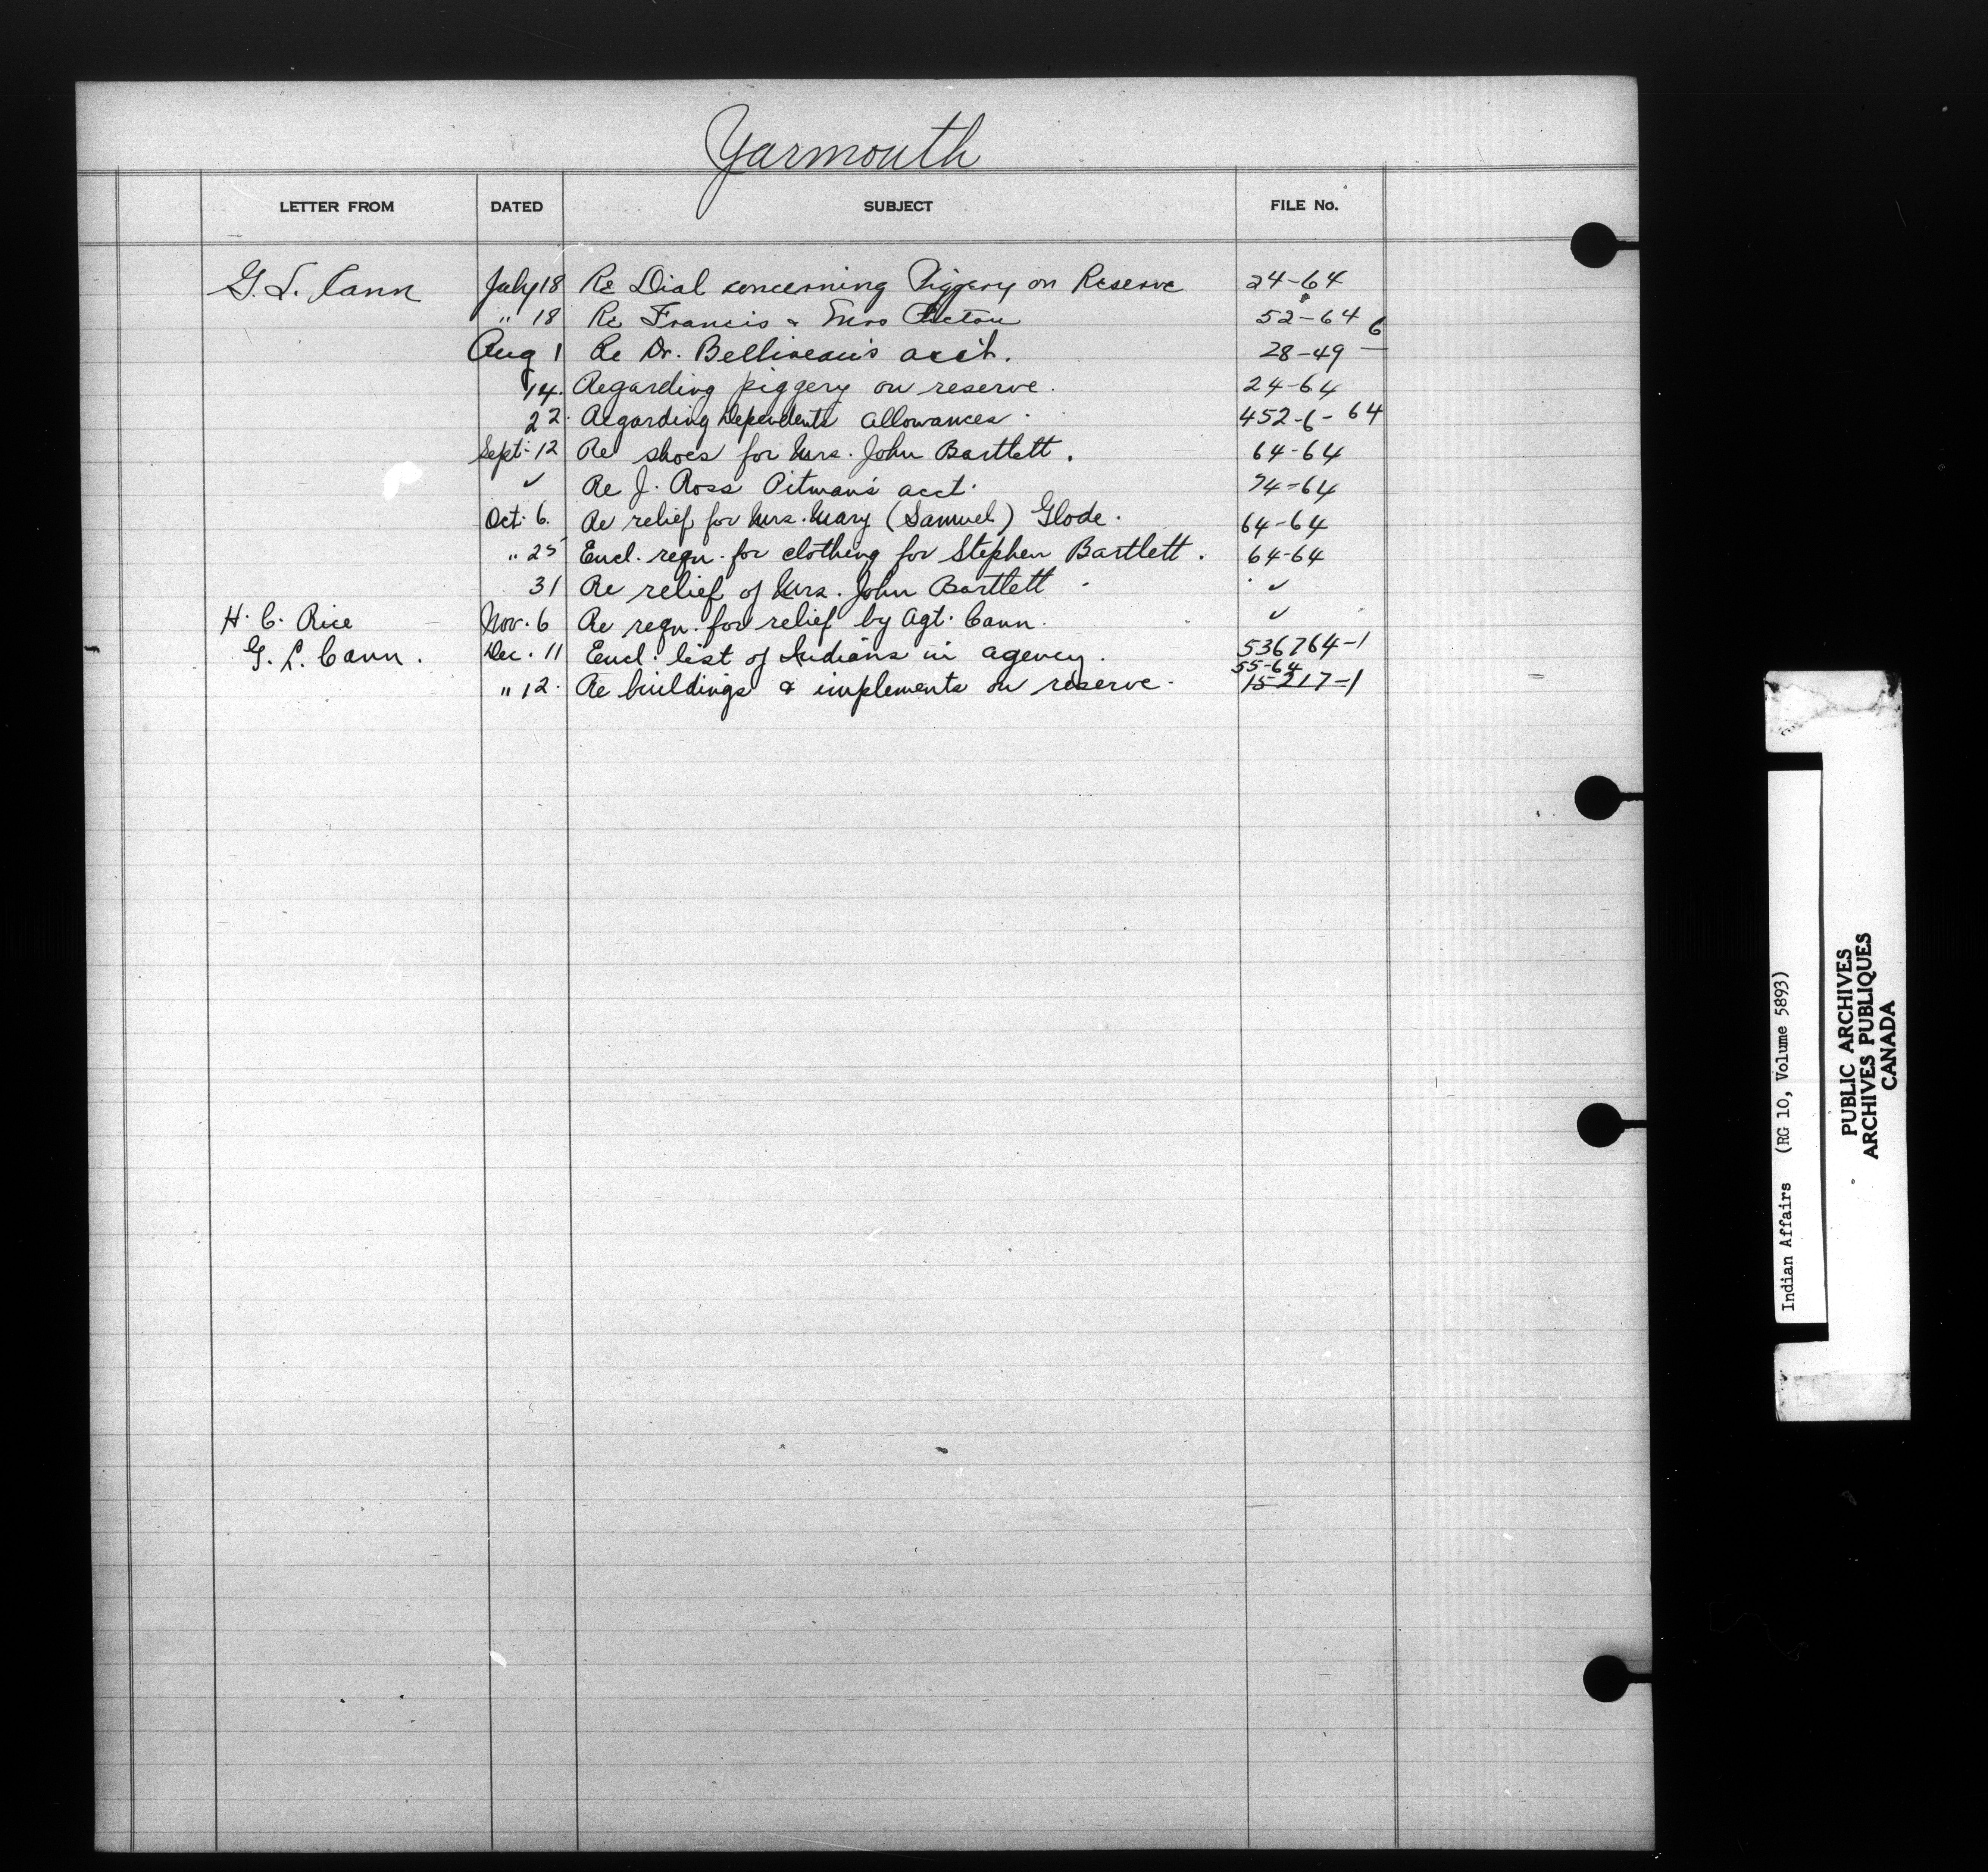 Yarmouth
LETTER FROM DATED SUBJECT FILE No.
G. L. Cann July 18 Re Dial concerning Piggery on Reserve 24-64
" 18 Re Francis & Mrs 52-64
Aug 1 Re Dr. Belliveau's acc't. 28-49 6
14. Regarding piggery on reserve. 24-64
22. Regarding Dependents allowances. 452-6-64
Sept. 12 Re shoes for Mrs. John Bartlett. 64-64
✓ Re J. Ross Pitman's acct. 74-64
Oct. 6. Re relief for Mrs. Mary (Samuel) Glode. 64-64
" 25 Encl. reqn. for clothing for Stephen Bartlett. 64-64
31 Re relief of Mrs. John Bartlett ✓
H. C. Rice Nov. 6 Re reqn. for relief by Agt. Cann. ✓
G. L. Cann. Dec. 11 Encl. list of Indians in agency. 536764-1
55-64
" 12. Re buildings & implements on reserve. 15-217-1
Indian Affairs (RG 10, Volume 5893)
PUBLIC ARCHIVES
ARCHIVES PUBLIQUES
CANADA